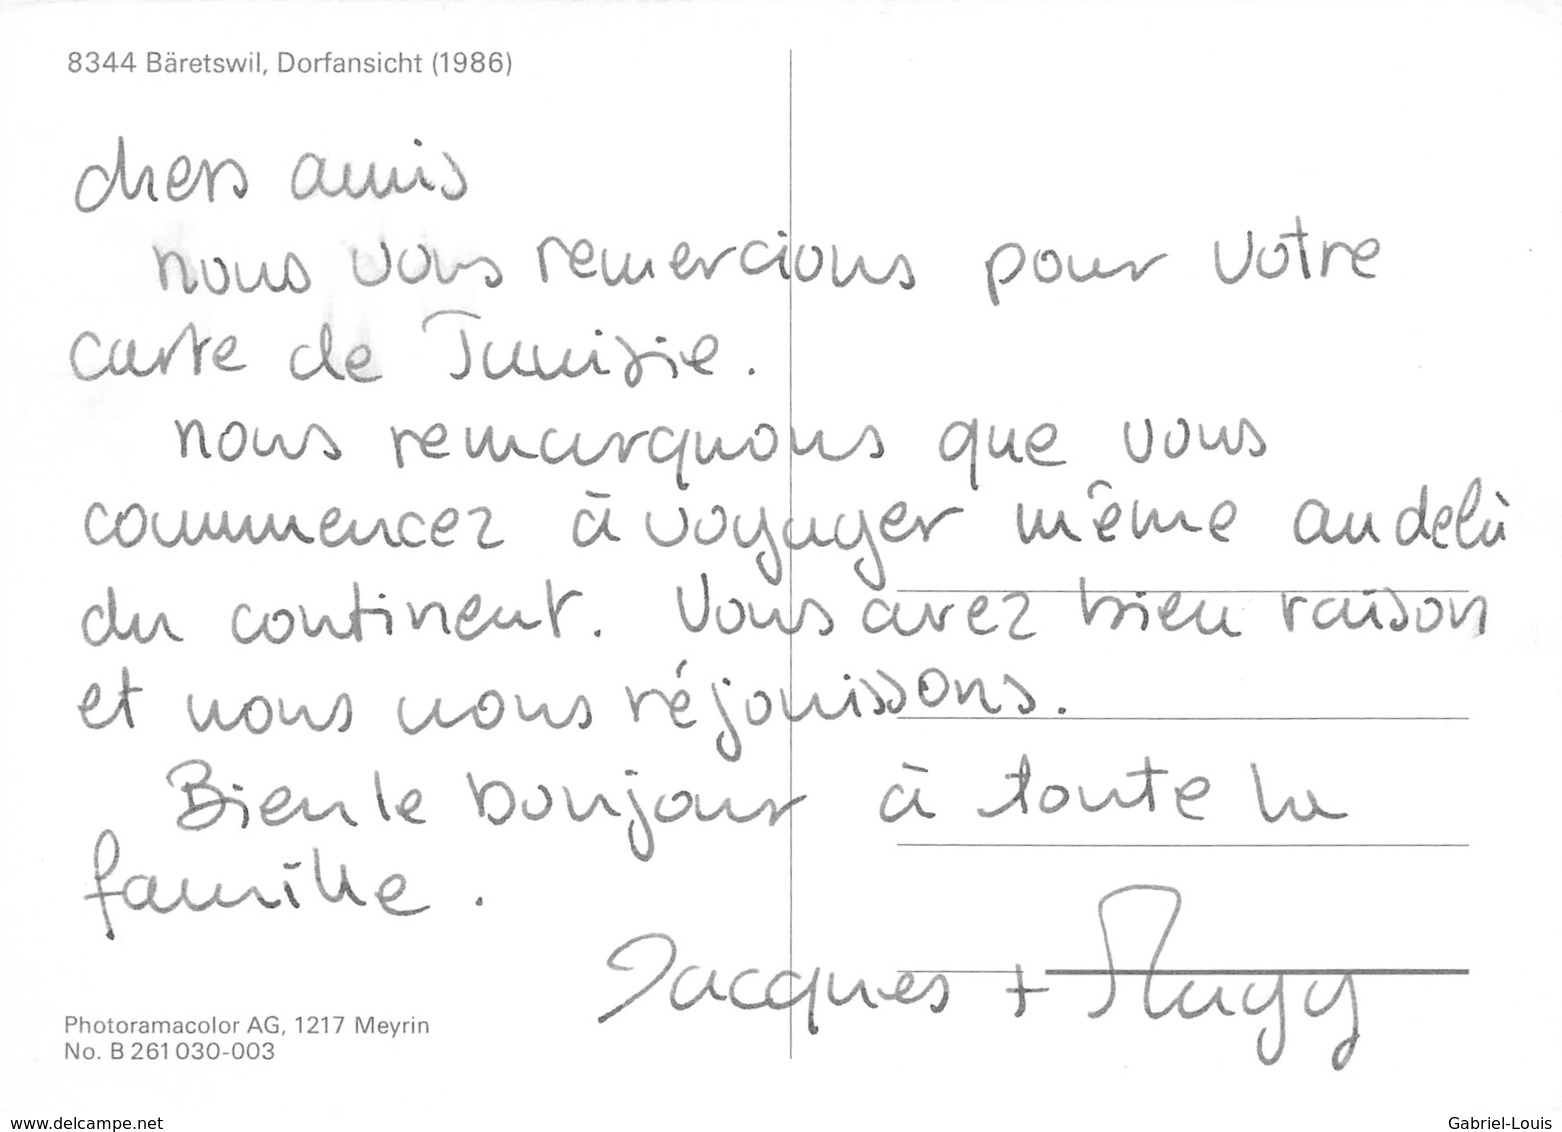 8344 Bäretswil, Dorfansicht (1986)
chers amis
nous vous remercions pour votre
carte de Tunisie.
nous remarquons que vous
commencez à voyager même au delà
du continent. Vous avez bien raison
et nous nous réjouissons.
Bien le bonjour à toute la
famille.
Jacques +
Photoramacolor AG, 1217 Meyrin
No. B 261 030-003
www.delcampe.net
Gabriel-Louis